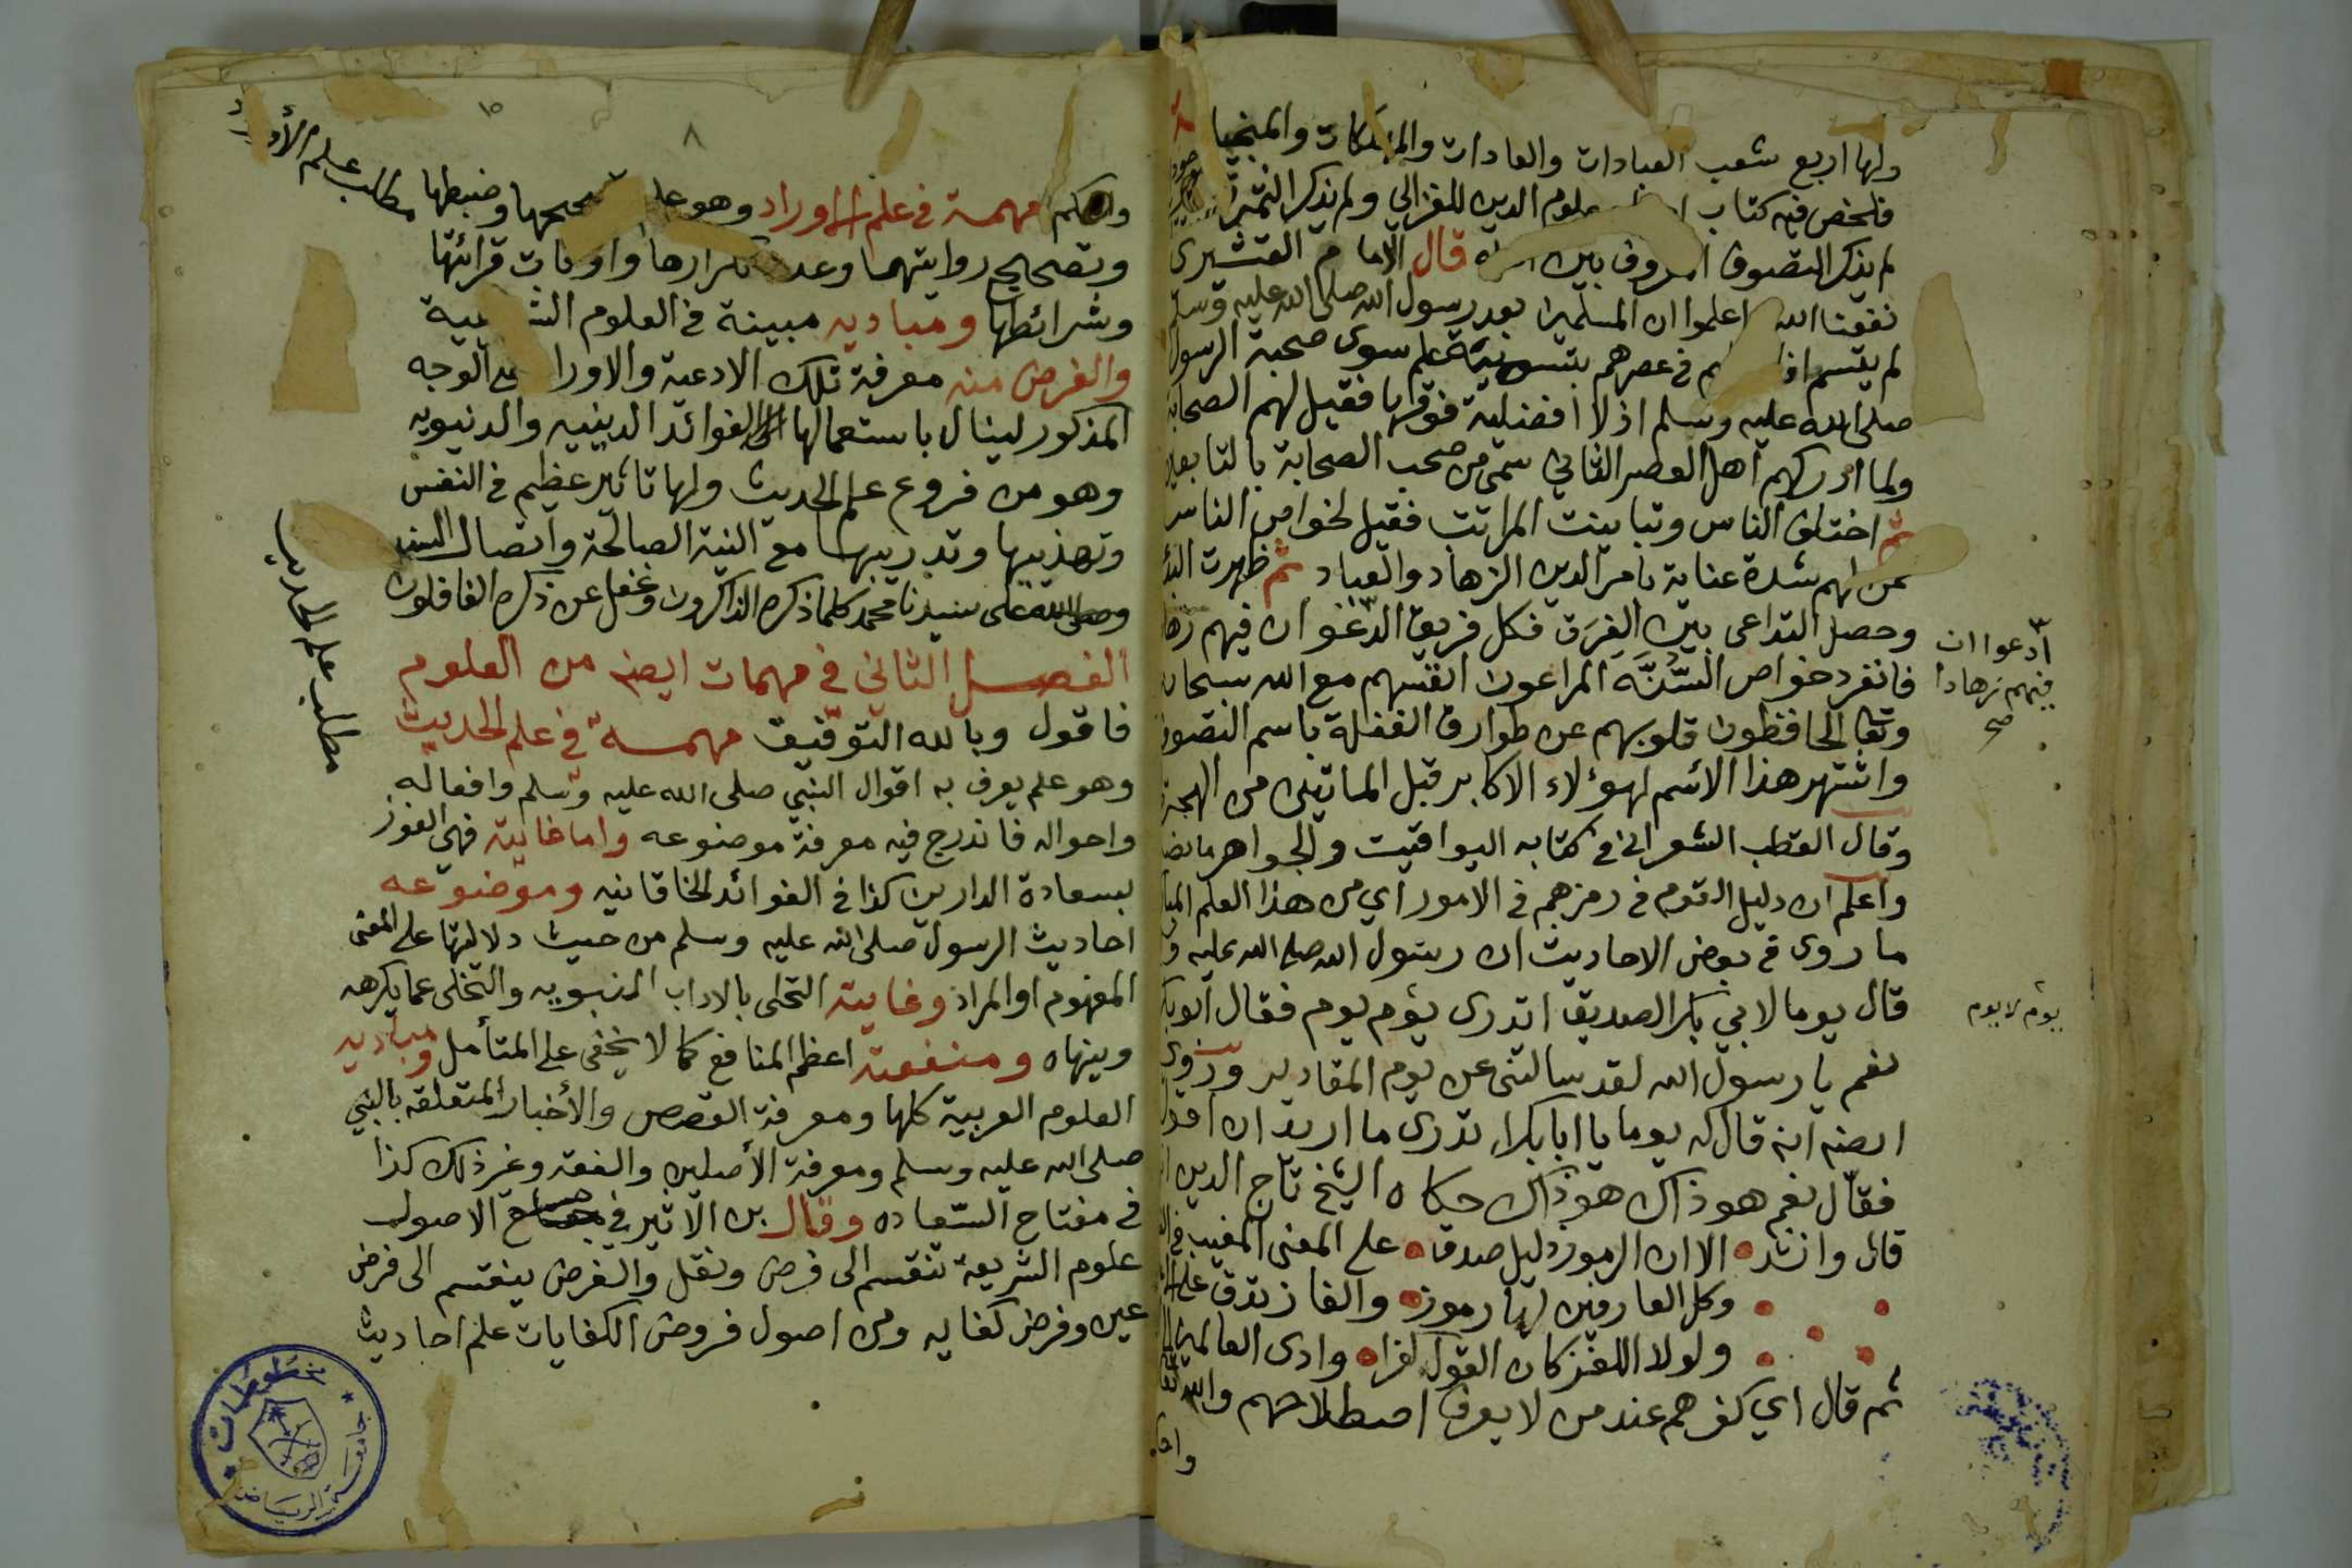 ولها اربع شعب العبادات والعادات والمهلكات والمنجيا
فلخص فيه كتاب علوم الدين للغزالي ولم يذكر الثمرة
لم يذكر التصوف بين قال الامام القشيرى
نفعنا الله اعلموا ان المسلمين بعد رسول الله صلى الله عليه وسلم
لم يتسم في عصرهم بتسمية علم سوى صحبة الرسول
صلى الله عليه وسلم اذ لا افضلية فوقها فقيل لهم الصحابة
ولما ادركهم اهل العصر الثاني سمى من صحب الصحابة بالتابعين
ثم اختلف الناس وتباينت المراتب فقيل لخواص الناس
ممن لهم شدة عناية بامر الدين الزهاد والعباد ثم ظهرت البدع
وحصل التداعى بين الفرق فكل فريق ادعوا ان فيهم زهادا
ادعوا ان
فيهم زهادا
صح
فانفرد خواص السنة المراعون انفسهم مع الله سبحانه
وتعالى الحافظون قلوبهم عن طوارق الغفلة باسم التصوف
واشتهر هذا الاسم لهؤلاء الاكابر قبل الماتين من الهجرة
وقال القطب الشعراني في كتابه اليواقيت والجواهر ما نصه
واعلم ان دليل القوم في رمزهم في الامور اي من هذا العلم
ما روى في بعض الاحاديث ان رسول الله صلى الله عليه
قال يوما لابي بكر الصديق اتدرى يوم يوم فقال ابو بكر
يوم لا يوم
نعم يا رسول الله لقد سالتنى عن يوم المقادير وروى
ايضه انه قال له يوما يا ابا بكر اتدرى ما اريد ان اقول
فقال نعم هو ذاك هو ذاك حكاه الشيخ تاج الدين
قال وانشد الا ان الرموز دليل صدق على المعنى المغيب في
وكل العارفين لها رموز والغاز تدق على
ولولا اللغز كان القول كفرا وادى العالمين
ثم قال اي كفرهم عند من لا يعرف اصطلاحهم والله
٨
١٥
مطلب علم الأوراد
مهمة في علم الاوراد وهو تصحيحها وضبطها
وتصحيح روايتهما وعدد تكرارها واوقات قرائتها
وشرائطها ومباديه مبينة في العلوم الشرعية
والغرض منه معرفة تلك الادعية والاوراد على الوجه
المذكور لينال باستعمالها الفوائد الدينيه والدنيويه
وهو من فروع علم الحديث ولها تاثير عظيم في النفس
وتهذيبها وتدريبها مع النية الصالحة واتصال السند
وصلى الله على سيدنا محمد كلما ذكره الذاكرون وغفل عن ذكره الغافلون
الفصل الثاني في مهمات ايضه من العلوم
مطلب علم الحديث
فاقول وبالله التوفيق مهمة في علم الحديث
وهو علم يعرف به اقوال النبي صلى الله عليه وسلم وافعاله
واحواله فاندرج فيه معرفة موضوعه واما غايته فهي الفوز
بسعادة الدارين كذا في الفوائد الخاقانيه وموضوعه
احاديث الرسول صلى الله عليه وسلم من حيث دلالتها على المعنى
المفهوم او المراد وغايته التحلى بالاداب النبويه والتخلى عما يكرهه
وينهاه ومنفعته اعظم المنافع كما لا يخفى على المتأمل ومباديه
العلوم العربية كلها ومعرفة القصص والأخبار المتعلقه بالنبي
صلى الله عليه وسلم ومعرفة الأصلين والفقه وغير ذلك كذا
في مفتاح السعاده وقال بن الاثير في جامع الاصول
علوم الشريعة تنقسم الى فرض ونفل والفرض ينقسم الى فرض
عين وفرض كفايه ومن اصول فروض الكفايات علم احاديث
مخطوطات
جامعة الرياض